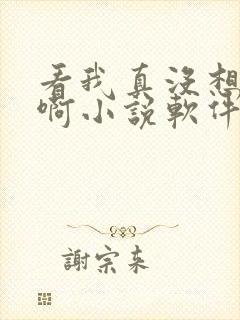 看我真没想
啊小說軟件
謝宗来